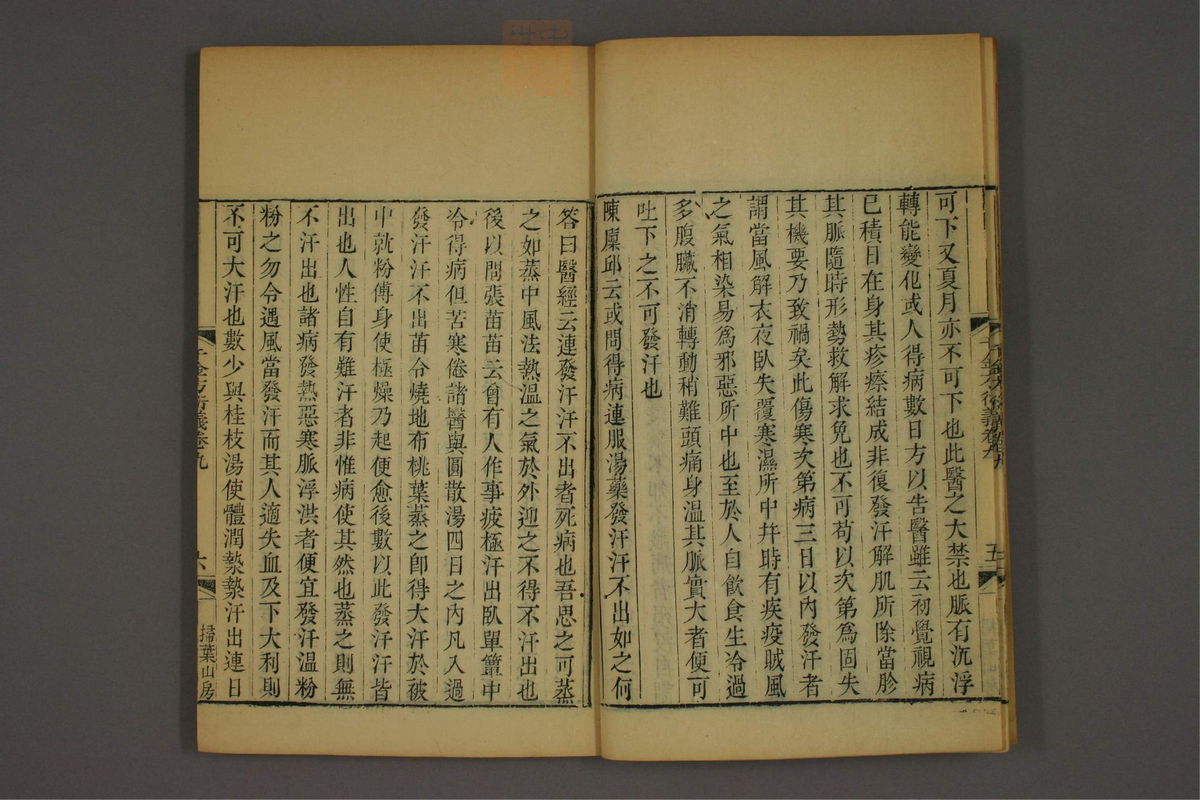 可下又夏月亦不可下也此醫之大禁也脈有沉浮
轉能變化或人得病數日方以告醫雖云初覺視病
已積日在身其疹瘵結成非復發汗解肌所除當胗
其脈隨時形勢救解求免也不可苟以次第為固失
其機要乃致禍矣此傷寒次第病三日以內發汗者
謂當風解衣夜臥失覆寒濕所中幷時有疾疫賊風
之氣相染易為邪惡所中也至於人自飲食生冷過
多腹臟不消轉動稍難頭痛身溫其脈實大者便可
吐下之不可發汗也
陳廩邱云或問得病連服湯藥發汗汗不出如之何
千金方衍義卷九
五
答曰醫經云連發汗汗不出者死病也吾思之可蒸
之如蒸中風法熱溫之氣於外迎之不得不汗出也
後以問張苗苗云曾有人作事疲極汗出臥單簟中
冷得病但苦寒倦諸醫與圓散湯四日之內凡八過
發汗汗不出苗令燒地布桃葉蒸之卽得大汗於被
中就粉傅身使極燥乃起便愈後數以此發汗汗皆
出也人性自有難汗者非惟病使其然也蒸之則無
不汗出也諸病發熱惡寒脈浮洪者便宜發汗溫粉
粉之勿令遇風當發汗而其人適失血及下大利則
不可大汗也數少與桂枝湯使體潤漐漐汗出連日
千金方衍義卷九
六
掃葉山房